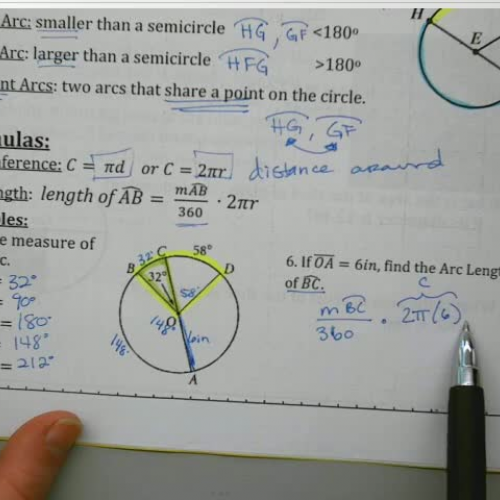 Arc: smaller than a semicircle HG, GF <180°
H
Arc: larger than a semicircle HFG >180°
E
nt Arcs: two arcs that share a point on the circle.
HG, GF
ulas:
nference: C = πd or C = 2πr. distance around
ngth: length of AB = mAB/360 · 2πr
les:
e measure of
c.
= 32°
= 90°
= 180°
= 148°
= 212°
32° C 58°
B 32° D
58°
O
148°
148° 6in
A
6. If OA = 6in, find the Arc Lengt
of BC.
C
mBC/360 · 2π(6)